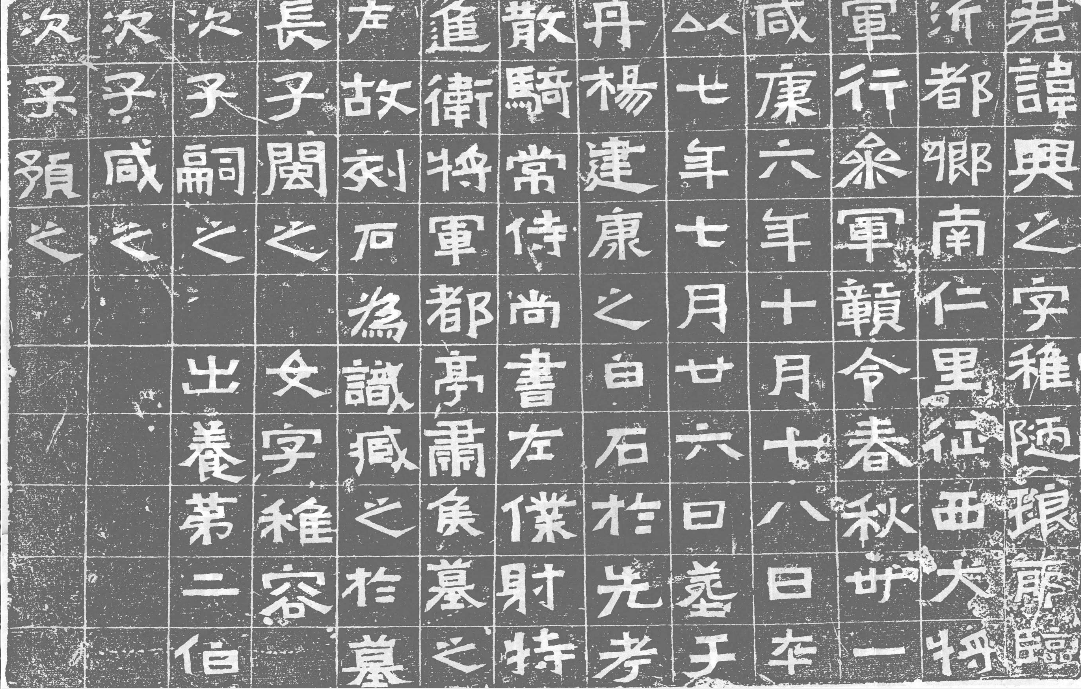 君諱興之字稚陋琅耶臨
沂都鄉南仁里征西大將
軍行參軍贛令春秋卅一
咸康六年十月十八日卒
以七年七月廿六日塟于
丹楊建康之白石於先考
散騎常侍尚書左僕射特
進衛將軍都亭肅侯墓之
左故刻石為識臧之於墓
長子閩之　女字稚容
次子嗣之　出養第二伯
次子咸之
次子預之